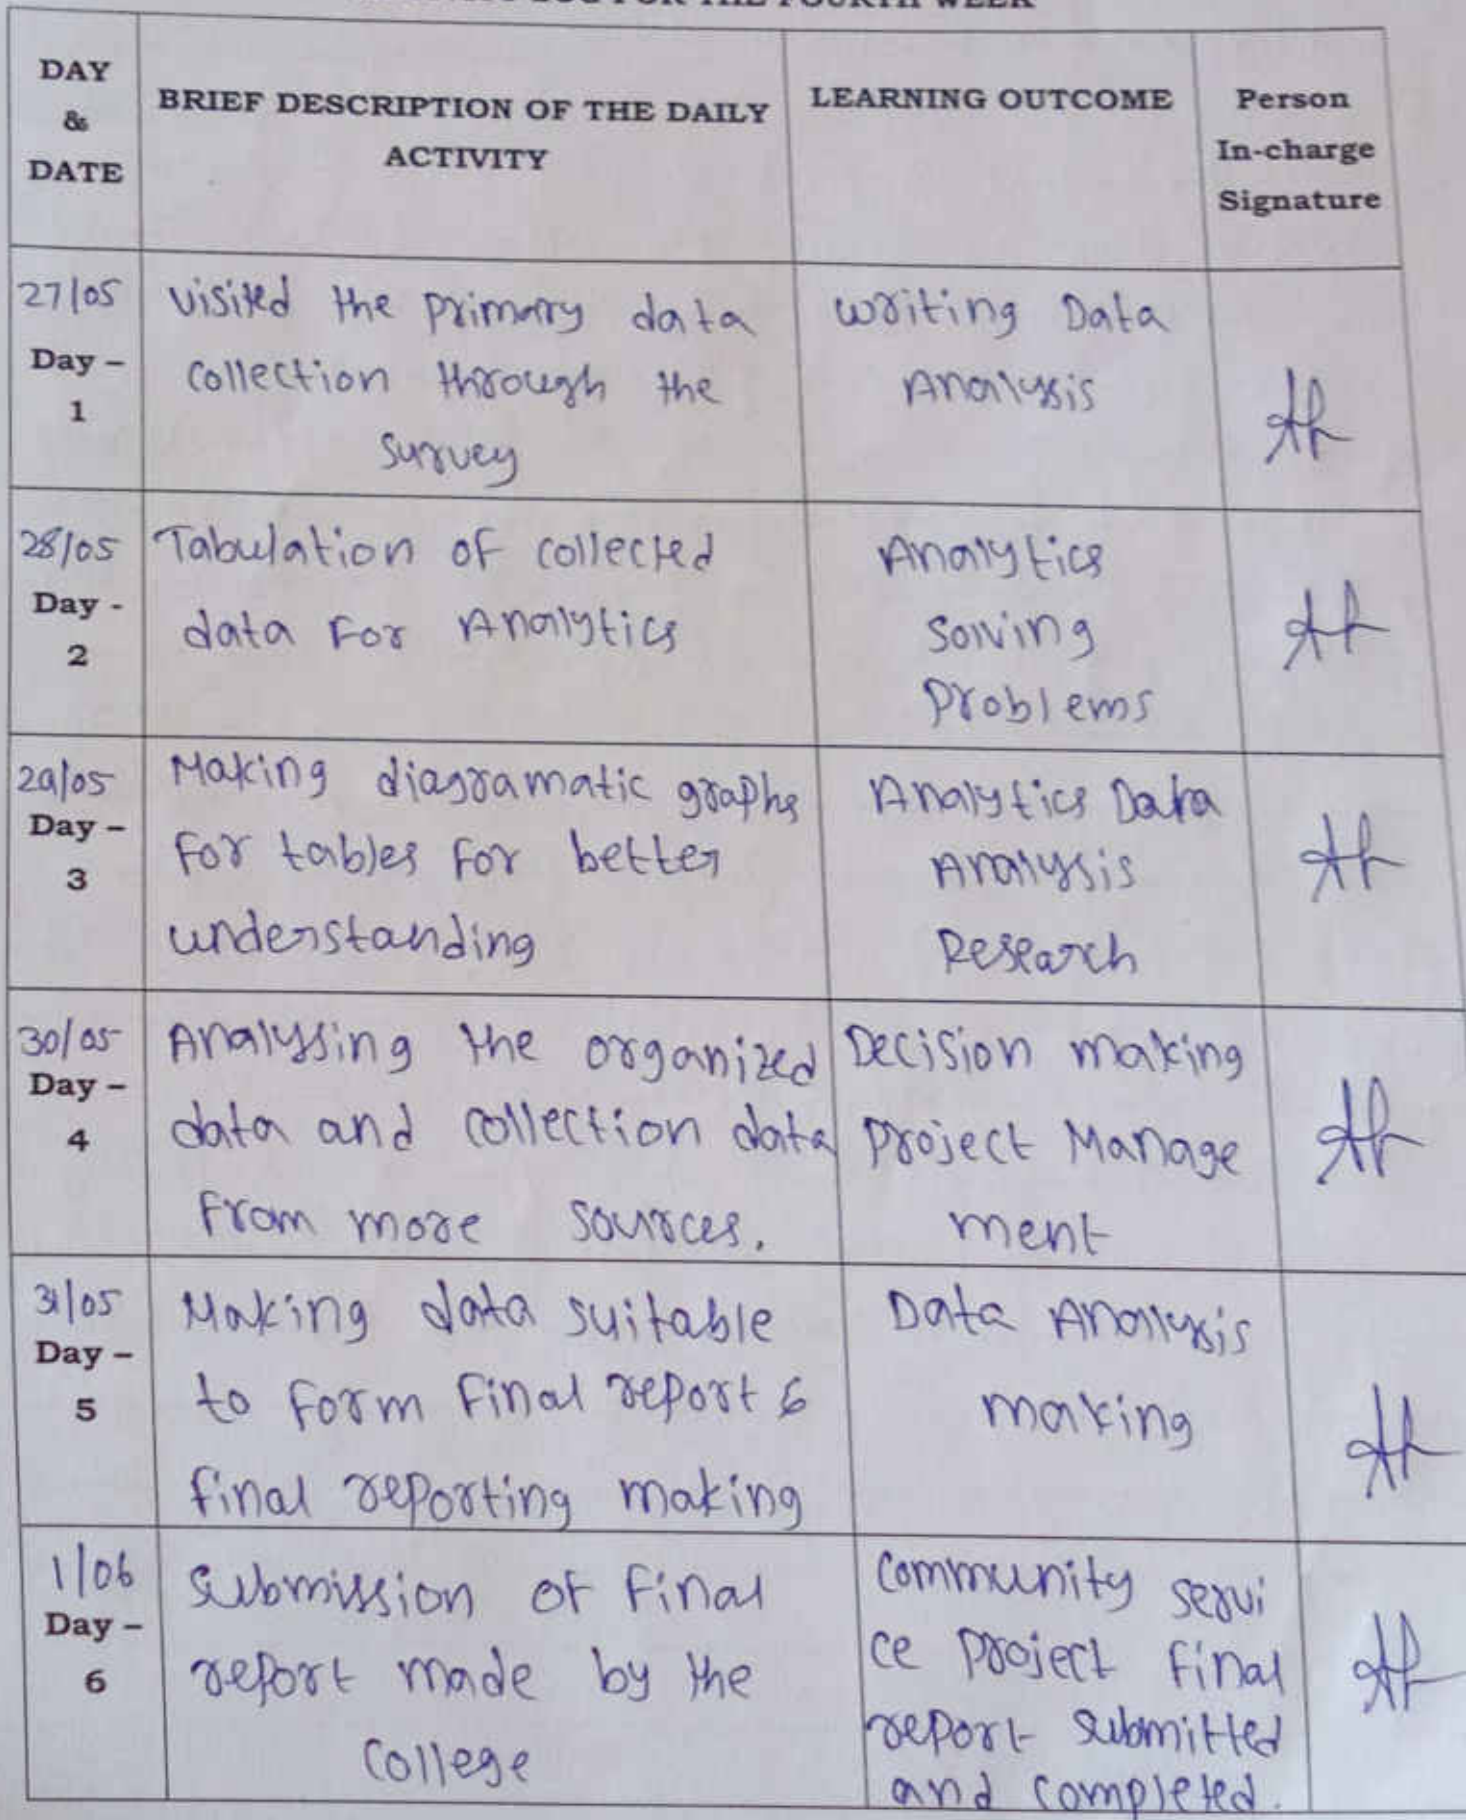 FOR THE FOURTH WEEK
DAY
&
DATE
BRIEF DESCRIPTION OF THE DAILY
ACTIVITY
LEARNING OUTCOME
Person
In-charge
Signature
27/05
Day –
1
visited the primary data
collection through the
survey
writing Data
Analysis
28/05
Day -
2
Tabulation of collected
data for Analytics
Analytics
solving
problems
29/05
Day –
3
Making diagramatic graphs
for tables for better
understanding
Analytics Data
Analysis
Research
30/05
Day –
4
Analysing the organized
data and collection data
from more sources.
Decision making
project Manage
ment
31/05
Day –
5
Making data suitable
to form final report &
final reporting making
Data Analysis
making
1/06
Day –
6
submission of final
report made by the
college
community servi
ce project final
report submitted
and completed.